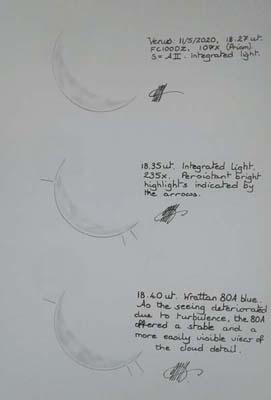 Venus 11/5/2020, 18.27 ut.
FC100DZ, 107x (Prism)
S = AII. Integrated light.
18.35 ut. Integrated Light.
235x. Persistant bright
highlights indicated by
the arrows.
18.40 ut. Wrattan 80A blue.
As the seeing deteriorated
due to turbulence, the 80A
offered a stable and a
more easily visible view of
the cloud detail.